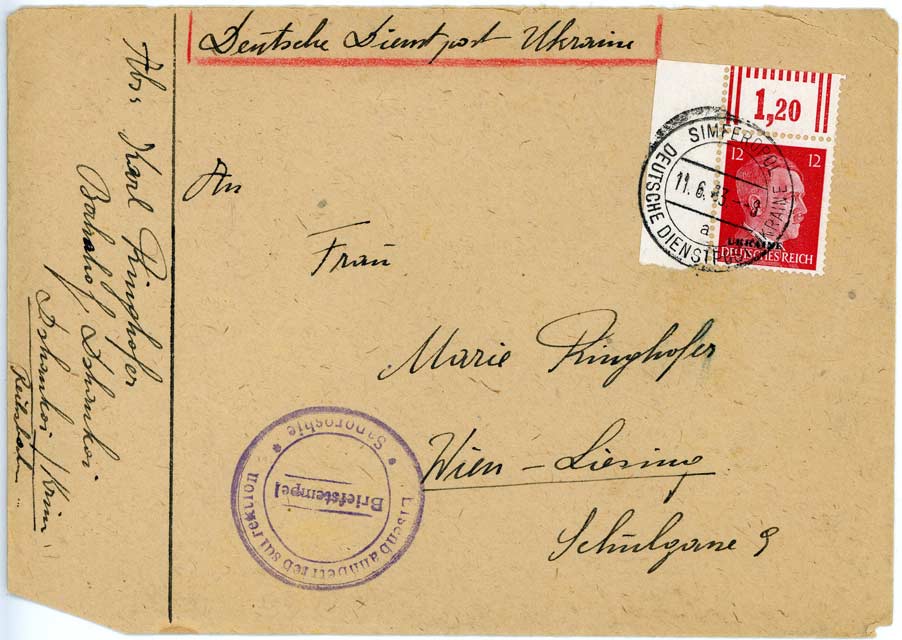 Deutsche Dienstpost Ukraine
1,20
12 12
UKRAINE
DEUTSCHES REICH
SIMFEROPOL
11.6.43.-8
a
DEUTSCHE DIENSTPOST UKRAINE
An
Frau
Marie Ringhofer
Wien - Liesing
Schulgasse 9
Eisenbahnbetriebsdirektion
* Saporoshje *
Briefstempel
Abs. Karl Ringhofer
Bahnhof, Dshankoi
Dshankoi / Krim